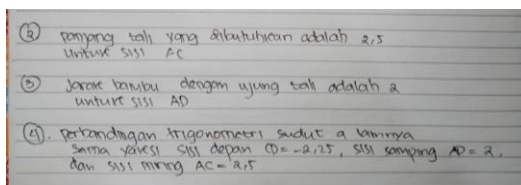 ② panjang tali yang dibutuhkan adalah 2,5
untuk sisi AC
③ Jarak bambu dengan ujung tali adalah 2
untuk sisi AD
④. perbandingan trigonometri sudut a lainnya
sama yakesi sisi depan CD = -2,25, sisi samping AD = 2,
dan sisi miring AC = 2,5